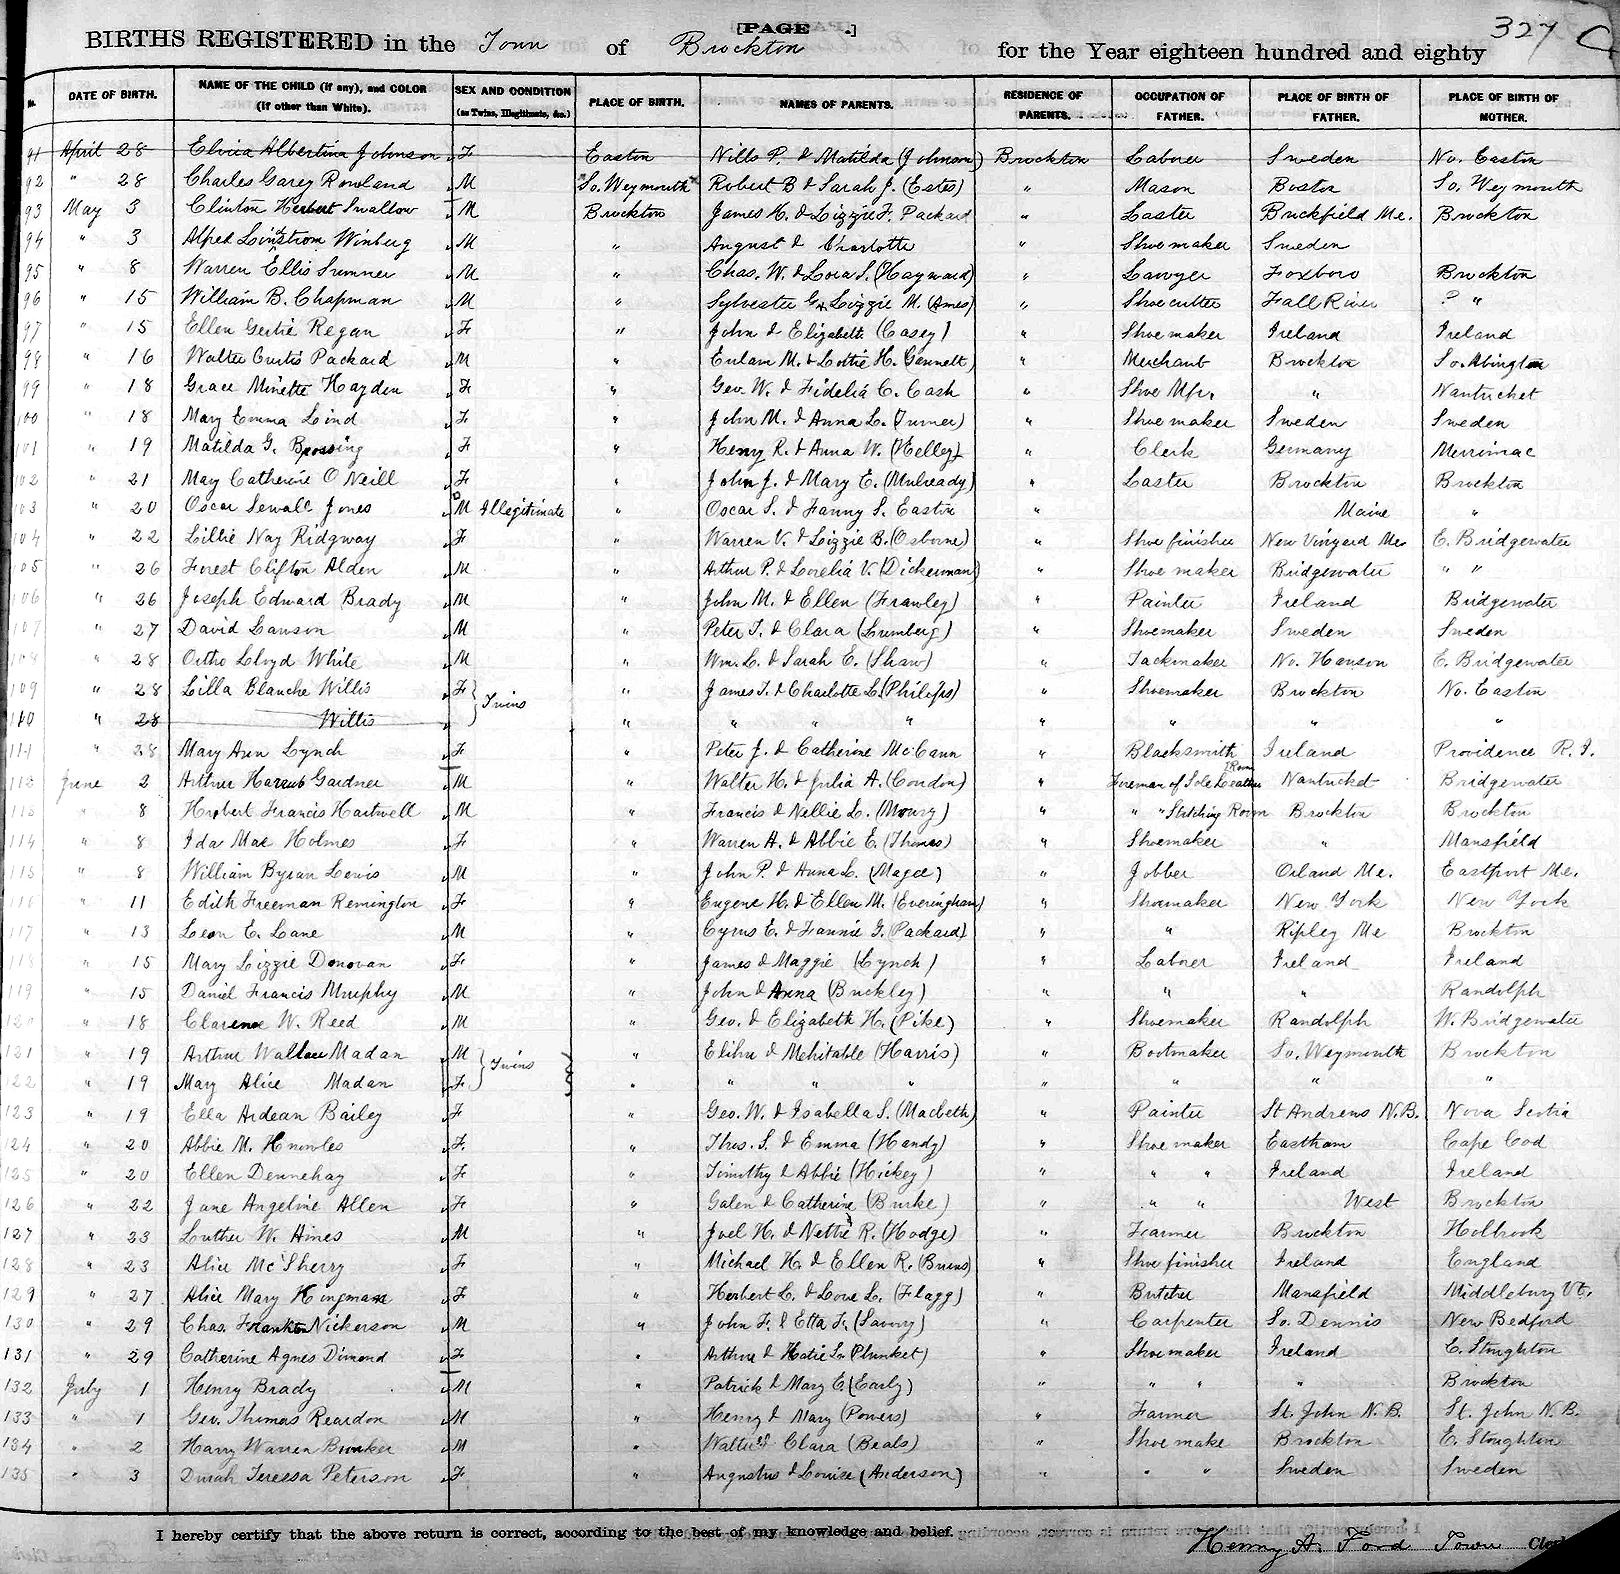 [PAGE .]
327
BIRTHS REGISTERED in the Town of Brockton for the Year eighteen hundred and eighty
No. DATE OF BIRTH. NAME OF THE CHILD (if any), and COLOR (if other than White). SEX AND CONDITION (as Twins, Illegitimate, &c.) PLACE OF BIRTH. NAMES OF PARENTS. RESIDENCE OF PARENTS. OCCUPATION OF FATHER. PLACE OF BIRTH OF FATHER. PLACE OF BIRTH OF MOTHER.
91 April 28 Elvira Albertina Johnson F Easton Nills P. & Matilda (Johnson) Brockton Laborer Sweden No. Easton
92 " 28 Charles Garey Rowland M So. Weymouth Robert B & Sarah J. (Estes) " Mason Boston So. Weymouth
93 May 3 Clinton Herbert Swallow M Brockton James H. & Lizzie F. Packard " Laster Buckfield Me. Brockton
94 " 3 Alfred Linnstrom Winberg M " August & Charlotte " Shoemaker Sweden
95 " 8 Warren Ellis Sumner M " Chas. W. & Lora S. (Hayward) " Lawyer Foxboro Brockton
96 " 15 William B. Chapman M " Sylvester G. & Lizzie M. (Ames) " Shoe cutter Fall River ? "
97 " 15 Ellen Gertie Regan F " John & Elizabeth (Casey) " Shoemaker Ireland Ireland
98 " 16 Walter Curtis Packard M " & Lottie H. Gannett " Merchant Brockton So. Abington
99 " 18 Grace Minette Hayden F " Geo. W. & Fidelia C. Cash " Shoe Mfr. " Nantucket
100 " 18 Mary Emma Lind F " John M. & Anna L. (Turner) " Shoemaker Sweden Sweden
101 " 19 Matilda G. F " Henry R. & Anna W. (Kelley) " Clerk Germany Merrimac
102 " 21 May Catherine O'Neill F " John J. & Mary E. (Mulready) " Laster Brockton Brockton
103 " 20 Oscar Sewall Jones M Illegitimate " Oscar S. & Fanny S. Easton " Maine "
104 " 22 Lillie Nay Ridgway F " Warren V. & Lizzie B. (Osborne) " Shoe finisher New Vinyard Me. E. Bridgewater
105 " 26 Forest Clifton Alden M " Arthur P. & Lorelia V. (Dickerman) " Shoe maker Bridgewater " "
106 " 26 Joseph Edward Brady M " John M. & Ellen (Frawley) " Painter Ireland Bridgewater
107 " 27 David Lawson M " Peter T. & Clara (Lumberg) " Shoemaker Sweden Sweden
108 " 28 Ortho Lloyd White M " Wm. L. & Sarah E. (Shaw) " Tackmaker No. Hanson E. Bridgewater
109 " 28 Lilla Blanche Willis F } Twins " James T. & Charlotte L. (Philips) " Shoemaker Brockton No. Easton
110 " 28 Willis " " " " " " " "
111 " 28 Mary Ann Lynch F " Peter J. & Catherine McCann " Blacksmith Ireland Providence R. I.
112 June 2 Arthur Gardner M " Walter H. & Julia A. (Condon) " Foreman of Sole Leather Room Nantucket Bridgewater
113 " 8 Herbert Francis Hartwell M " Francis & Nellie L. (Mowry) " " " Stitching Room Brockton Brockton
114 " 8 Ida Mae Holmes F " Warren A. & Abbie E. (Thomas) " Shoemaker " Mansfield
115 " 8 William Byran Lewis M " John P. & Anna L. (Magee) " Jobber Orland Me. Eastport Me.
116 " 11 Edith Freeman Remington F " Eugene H. & Ellen M. (Everingham) " Shoemaker New York New York
117 " 13 Leon E. Lane M " Cyrus E. & Fannie G. (Packard) " " Ripley Me Brockton
118 " 15 Mary Lizzie Donovan F " James & Maggie (Lynch) " Laborer Ireland Ireland
119 " 15 Daniel Francis Murphy M " John & Anna (Buckley) " " " Randolph
120 " 18 Clarence W. Reed M " Geo. & Elizabeth H. (Pike) " Shoemaker Randolph W. Bridgewater
121 " 19 Arthur Wallace Madan M } Twins " Elihu & Mehitable (Harris) " Bootmaker So. Weymouth Brockton
122 " 19 Mary Alice Madan F " " " " " " " "
123 " 19 Ella Ardean Bailey F " Geo. W. & Isabella S. (Macbeth) " Painter St Andrews N.B. Nova Scotia
124 " 20 Abbie M. Knowles F. " Thos. S. & Emma (Handy) " Shoe maker Eastham Cape Cod
125 " 20 Ellen Dennehay F " Timothy & Abbie (Hickey) " " " Ireland Ireland
126 " 22 Jane Angeline Allen F " Galen & Catherine (Burke) " " " West Brockton
127 " 23 Luther W. Hines M " Joel H. & Nettie R. (Hodge) " Farmer Brockton Holbrook
128 " 23 Alice McSherry F " Michael H. & Ellen R. (Burns) " Shoe finisher Ireland England
129 " 27 Alice Mary Kingman F " Herbert L. & Lora L. (Flagg) " Butcher Mansfield Middlebury Vt.
130 " 29 Chas. Franklin Nickerson M " John F. & Etta F. (Savory) " Carpenter So. Dennis New Bedford
131 " 29 Catherine Agnes Dimond F " Arthur & Katie L. (Plunket) " Shoemaker Ireland E. Stoughton
132 July 1 Henry Brady M " Patrick & Mary E. (Early) " " " " Brockton
133 " 1 Geo. Thomas Reardon M " Henry & Mary (Powers) " Farmer St. John N.B. St. John N.B.
134 " 2 Harry Warren Bunker M " Walter & Clara (Beals) " Shoe make Brockton E. Stoughton
135 " 3 Teressa Peterson F " Augustus & Louise (Anderson) " " " Sweden Sweden
I hereby certify that the above return is correct, according to the best of my knowledge and belief.
Henry A. Ford Town Clerk